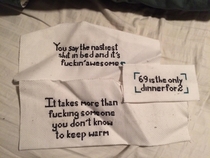 You say the nastiest
shit in bed and it's
fuckin' awesome
69 is the only
dinner for 2
It takes more than
fucking someone
you don't know
to keep warm